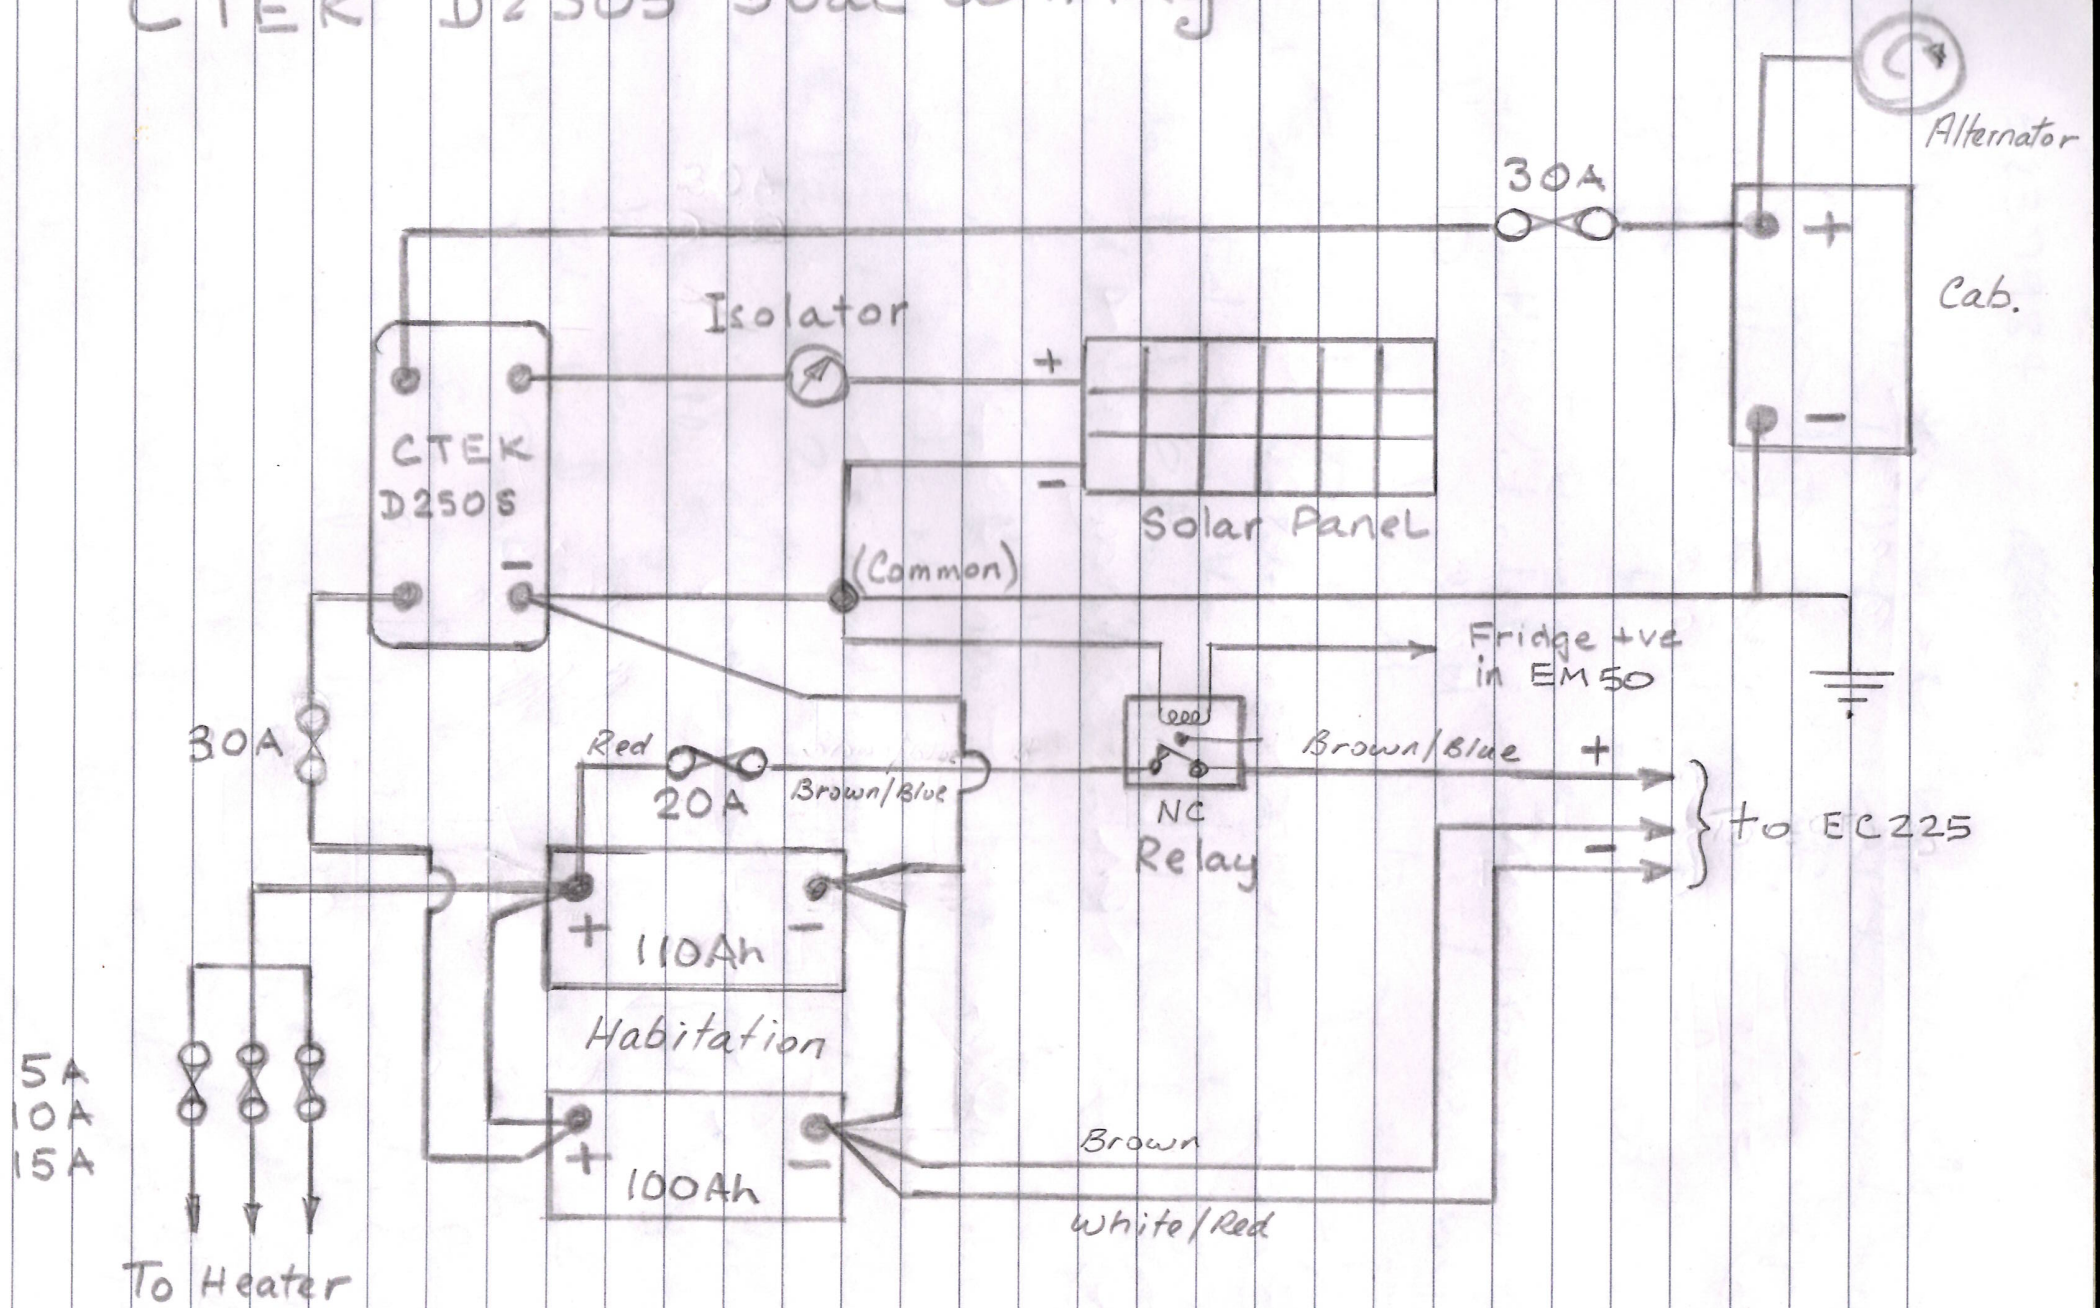 CTEK D250S
Alternator
30A
+
Cab.
-
Isolator
+
-
Solar Panel
CTEK
D250S
-
(Common)
Fridge +ve
in EM50
30A
Red
20A
Brown/Blue
NC
Relay
Brown/Blue
+
-
to EC225
+
-
110Ah
Habitation
+
-
100Ah
Brown
White/Red
5A
10A
15A
To Heater